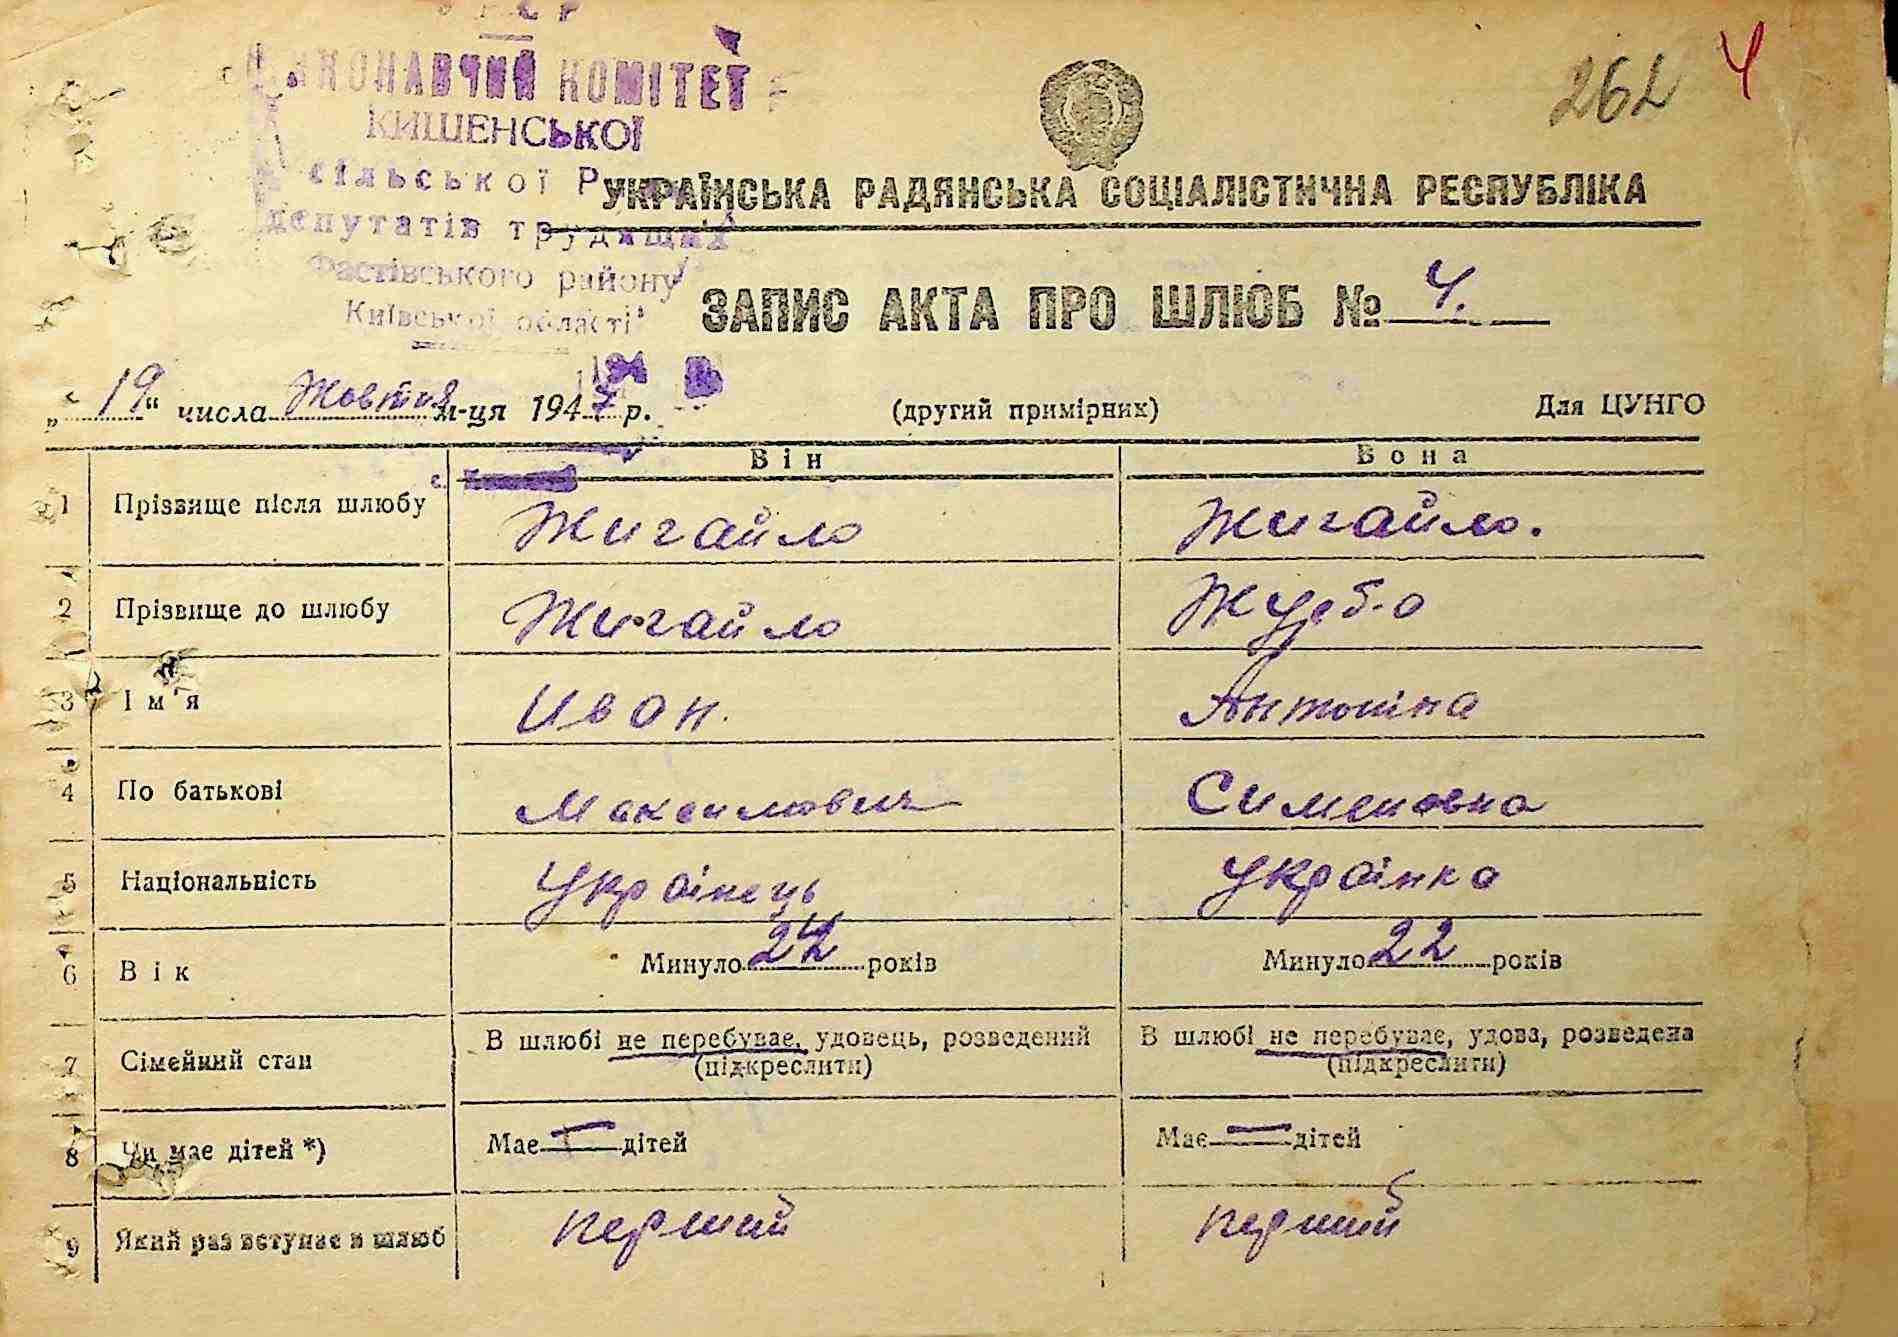 УРСР
ВИКОНАВЧИЙ КОМІТЕТ
КИШЕНСЬКОЇ
сільської Р
депутатів трудящих
Фастівського району
Київської області
262 4
УКРАЇНСЬКА РАДЯНСЬКА СОЦІАЛІСТИЧНА РЕСПУБЛІКА
ЗАПИС АКТА ПРО ШЛЮБ № 4.
„19“ числа Жовтня м-ця 1947 р. (другий примірник) Для ЦУНГО
Він Вона
1 Прізвище після шлюбу Жигайло Жигайло.
2 Прізвище до шлюбу Жигайло
3 Ім'я Иван. Антоніна
4 По батькові Максимович Сименовна
5 Національність Українець Українка
6 Вік Минуло років Минуло 22 років
7 Сімейний стан В шлюбі не перебуває, удовець, розведений В шлюбі не перебуває, удова, розведена
(підкреслити) (підкреслити)
8 Чи має дітей *) Має — дітей Має — дітей
9 Який раз вступає в шлюб перший перший